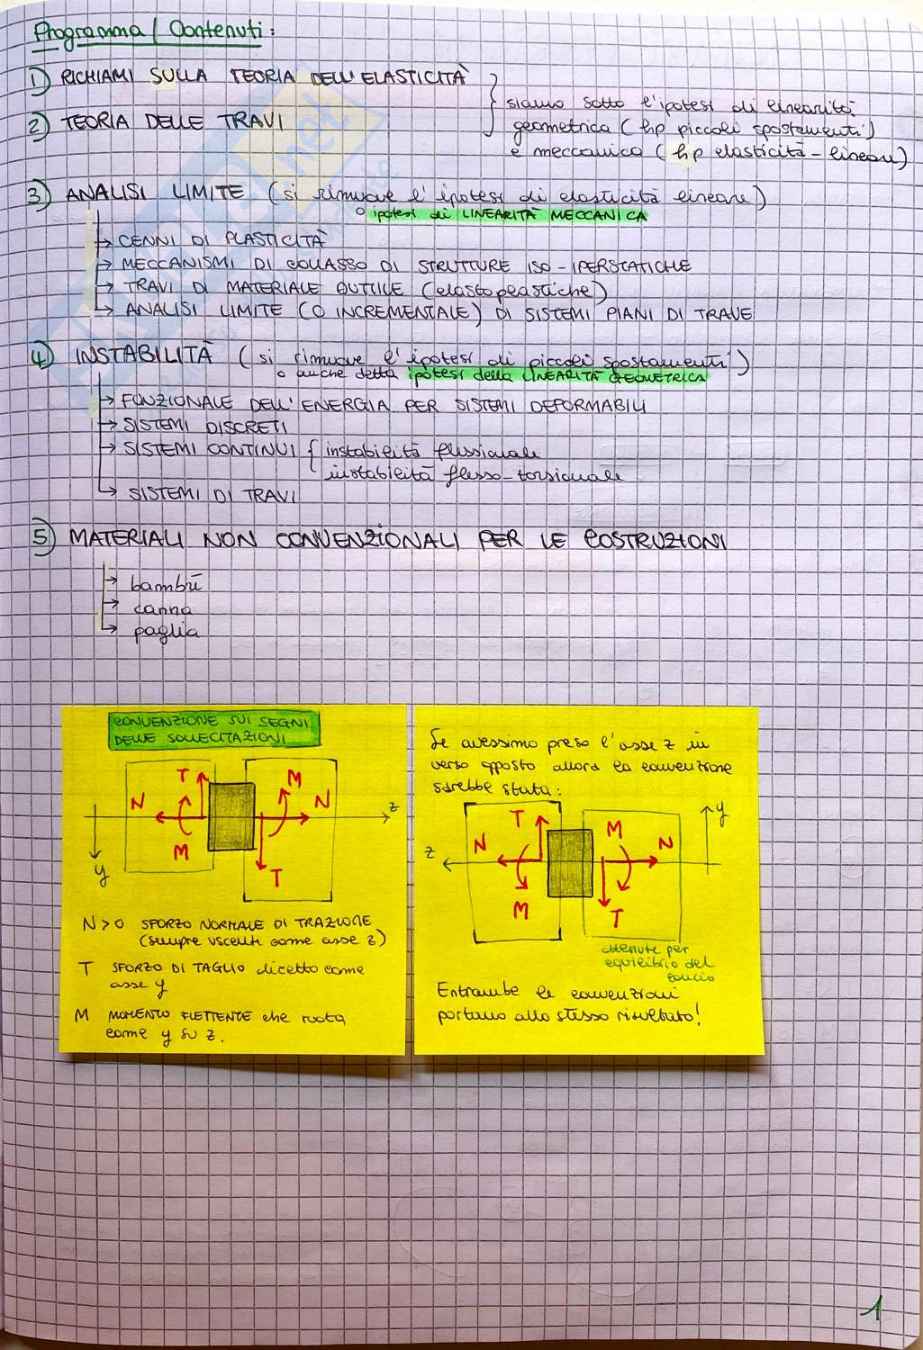 Programma / Contenuti:
1) RICHIAMI SULLA TEORIA DELL'ELASTICITÀ
2) TEORIA DELLE TRAVI
siamo sotto l'ipotesi di linearità
geometrica (hp piccoli spostamenti)
e meccanica (hp elasticità-lineare)
3) ANALISI LIMITE (si rimuove l'ipotesi di elasticità lineare)
o ipotesi di LINEARITÀ MECCANICA
→ CENNI DI PLASTICITÀ
→ MECCANISMI DI COLLASSO DI STRUTTURE ISO-IPERSTATICHE
→ TRAVI DI MATERIALE DUTTILE (elastoplastiche)
→ ANALISI LIMITE (O INCREMENTALE) DI SISTEMI PIANI DI TRAVE
4) INSTABILITÀ (si rimuove l'ipotesi di piccoli spostamenti)
o anche detta ipotesi della LINEARITÀ GEOMETRICA
→ FUNZIONALE DELL'ENERGIA PER SISTEMI DEFORMABILI
→ SISTEMI DISCRETI
→ SISTEMI CONTINUI { instabilità flessionale
instabilità flesso-torsionale
→ SISTEMI DI TRAVI
5) MATERIALI NON CONVENZIONALI PER LE COSTRUZIONI
→ bambù
→ canna
→ paglia
CONVENZIONE SUI SEGNI
DELLE SOLLECITAZIONI
T
M
N
N
z
M
y
T
N>0 SFORZO NORMALE DI TRAZIONE
(sempre uscente come asse z)
T SFORZO DI TAGLIO diretto come
asse y
M MOMENTO FLETTENTE che ruota
come y su z.
Se avessimo preso l'asse z in
verso opposto allora la convenzione
sarebbe stata:
T
M
y
N
N
z
M
T
ottenute per
equilibrio del
concio
Entrambe le convenzioni
portano allo stesso risultato!
1